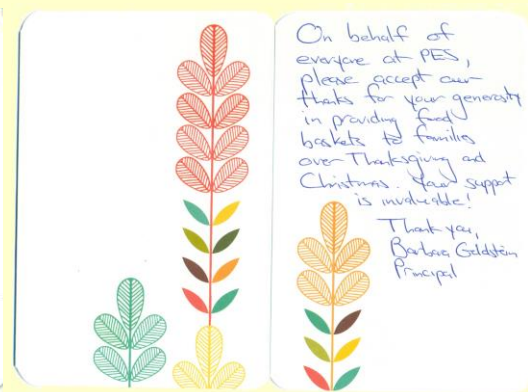 On behalf of
everyone at PES,
please accept our
thanks for your generosity
in providing food
baskets to families
over Thanksgiving and
Christmas. Your support
is invaluable!
Thank you,
Barbara Goldstein
Principal